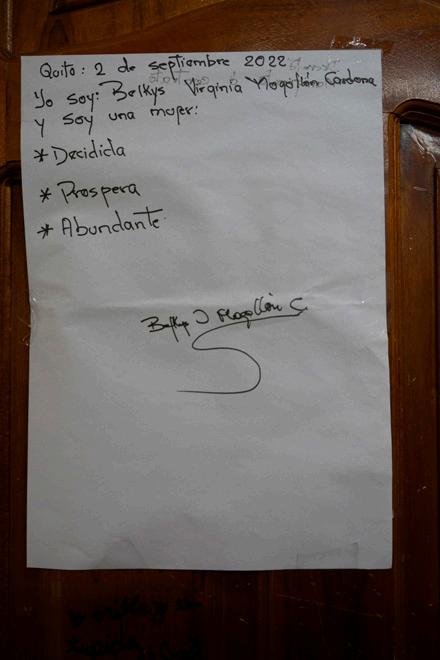 Quito: 2 de septiembre 2022
Yo soy: Belkys Virginia Mogollón Cardona
y soy una mujer:
* Decidida
* Prospera
* Abundante
Mogollón C.